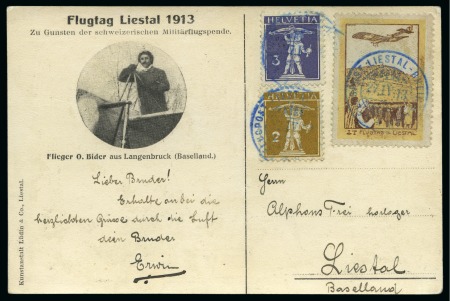 Flugtag Liestal 1913
Zu Gunsten der schweizerischen Militärflugspende.
Flieger O. Bider aus Langenbruck (Baselland.)
Lieber Bruder!
Erhalte anbei die
herzlichsten Grüsse durch die Luft
dein Bruder
Erwin
Kunstanstalt Lüdin & Co., Liestal.
HELVETIA
3
2
LIESTAL
Flugtag in Liestal
Herrn
Alphons Frei
Liestal
Baselland